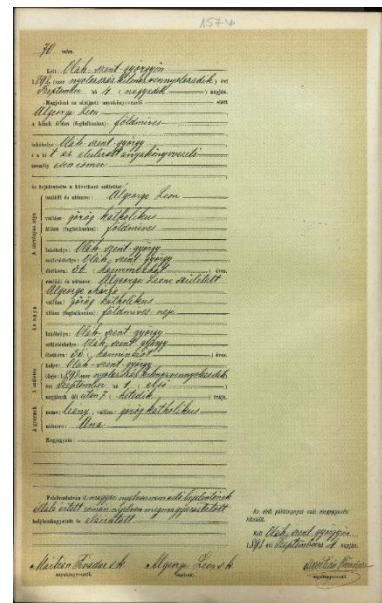 70 szám.
Kelt Oláh-szent-györgyön
1898 (azaz nyolczszáz kilenczvennyolczadik) évi
Szeptember hó 4. (negyedik) napján.
Megjelent az alulírott anyakönyvvezető előtt
Algeorge Leon
a kinek állása (foglalkozása): földmives
lakhelye: Oláh-szent-györgy
a kit az alulirott anyakönyvvezető
személyesen ismer
és bejelentette a következő születést:
A törvényes atya
családi és utóneve: Algeorge Leon
vallása: görög katholikus
állása (foglalkozása): földmives
lakhelye: Oláh-szent-györgy
születéshelye: Oláh-szent-györgy
életkora: éves.
Az anya
családi és utóneve: Algeorge Leone született
Algeorge
vallása: görög katholikus
állása (foglalkozása): földmives neje
lakhelye: Oláh-szent-györgy
születéshelye: Oláh-szent-györgy
életkora: éves.
A születés
helye: Oláh-szent-györgy
ideje: 1898 azaz nyolczszáz kilenczvennyolczadik
évi Szeptember hó 1. első
napjának délután 7. hetedik órája.
A gyermek
neme: leány, vallása: görög katholikus
utóneve: Ana
Megjegyzés:
Felolvastam, a magyar nyelvet nem értő bejelentőnek
általa értett román nyelven megmagyaráztatott
helybenhagyatott és aláíratott.
Algeorge Leon
anyakönyvvezető.
Az első példánynyal való megegyezést
hitelesítem.
Kelt Oláh-szent-györgyön
1898 évi Szeptember 4 napján.
anyakönyvvezető.